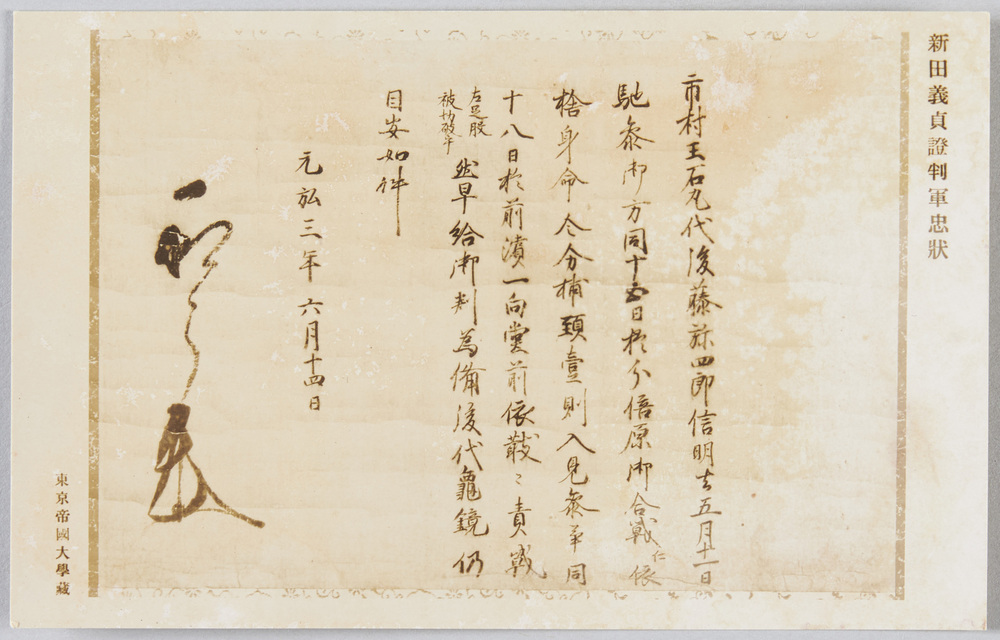 新田義貞證判軍忠狀
市村王石丸代後藤弥四郎信明去五月十一日
馳参御方同十五日於分倍原御合戦仁依
捨身命令分捕頚壹則入見参畢同
十八日於前濱一向堂前依散々責戦
左足股
被切破畢
然早給御判為備後代龜鏡仍
目安如件
元弘三年六月十四日
東京帝國大學藏